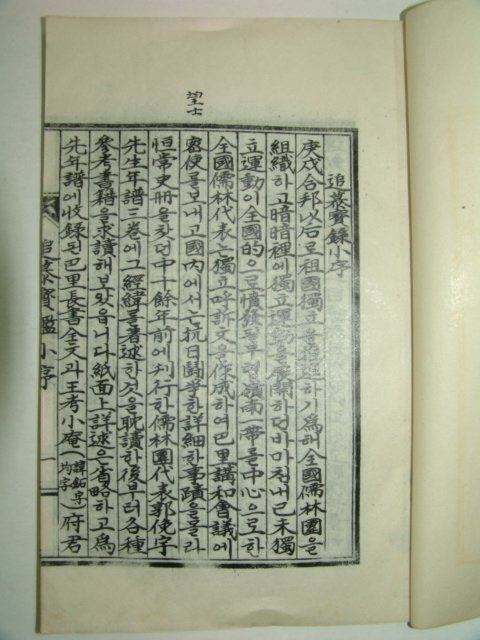 望士
追慕寶錄小序
庚戌合邦以后로祖國獨立을推進하기爲해全國儒林團을
組織하고暗暗裡에獨立運動을展開하던바마침내己未獨
立運動이全國的으로憤發될무렵嶺南一帶를中心으로한
全國儒林代表는獨立呼訴文을作成하여巴里講和會議에
密使를보내고國內에서는抗日鬪爭한詳細한事蹟을몰라
恒常史冊을찾던中十餘年前에刊行한儒林團代表郭俛宇
先生年譜三卷에그經緯를著述한것을耽讀한後부터各種
參考書籍을求讀해보왔읍니다紙面上詳述은省略하고爲
先年譜에收錄된巴里長書全文과王考小庵(諱鉐字均字)府君
追慕寶鑑小序
一